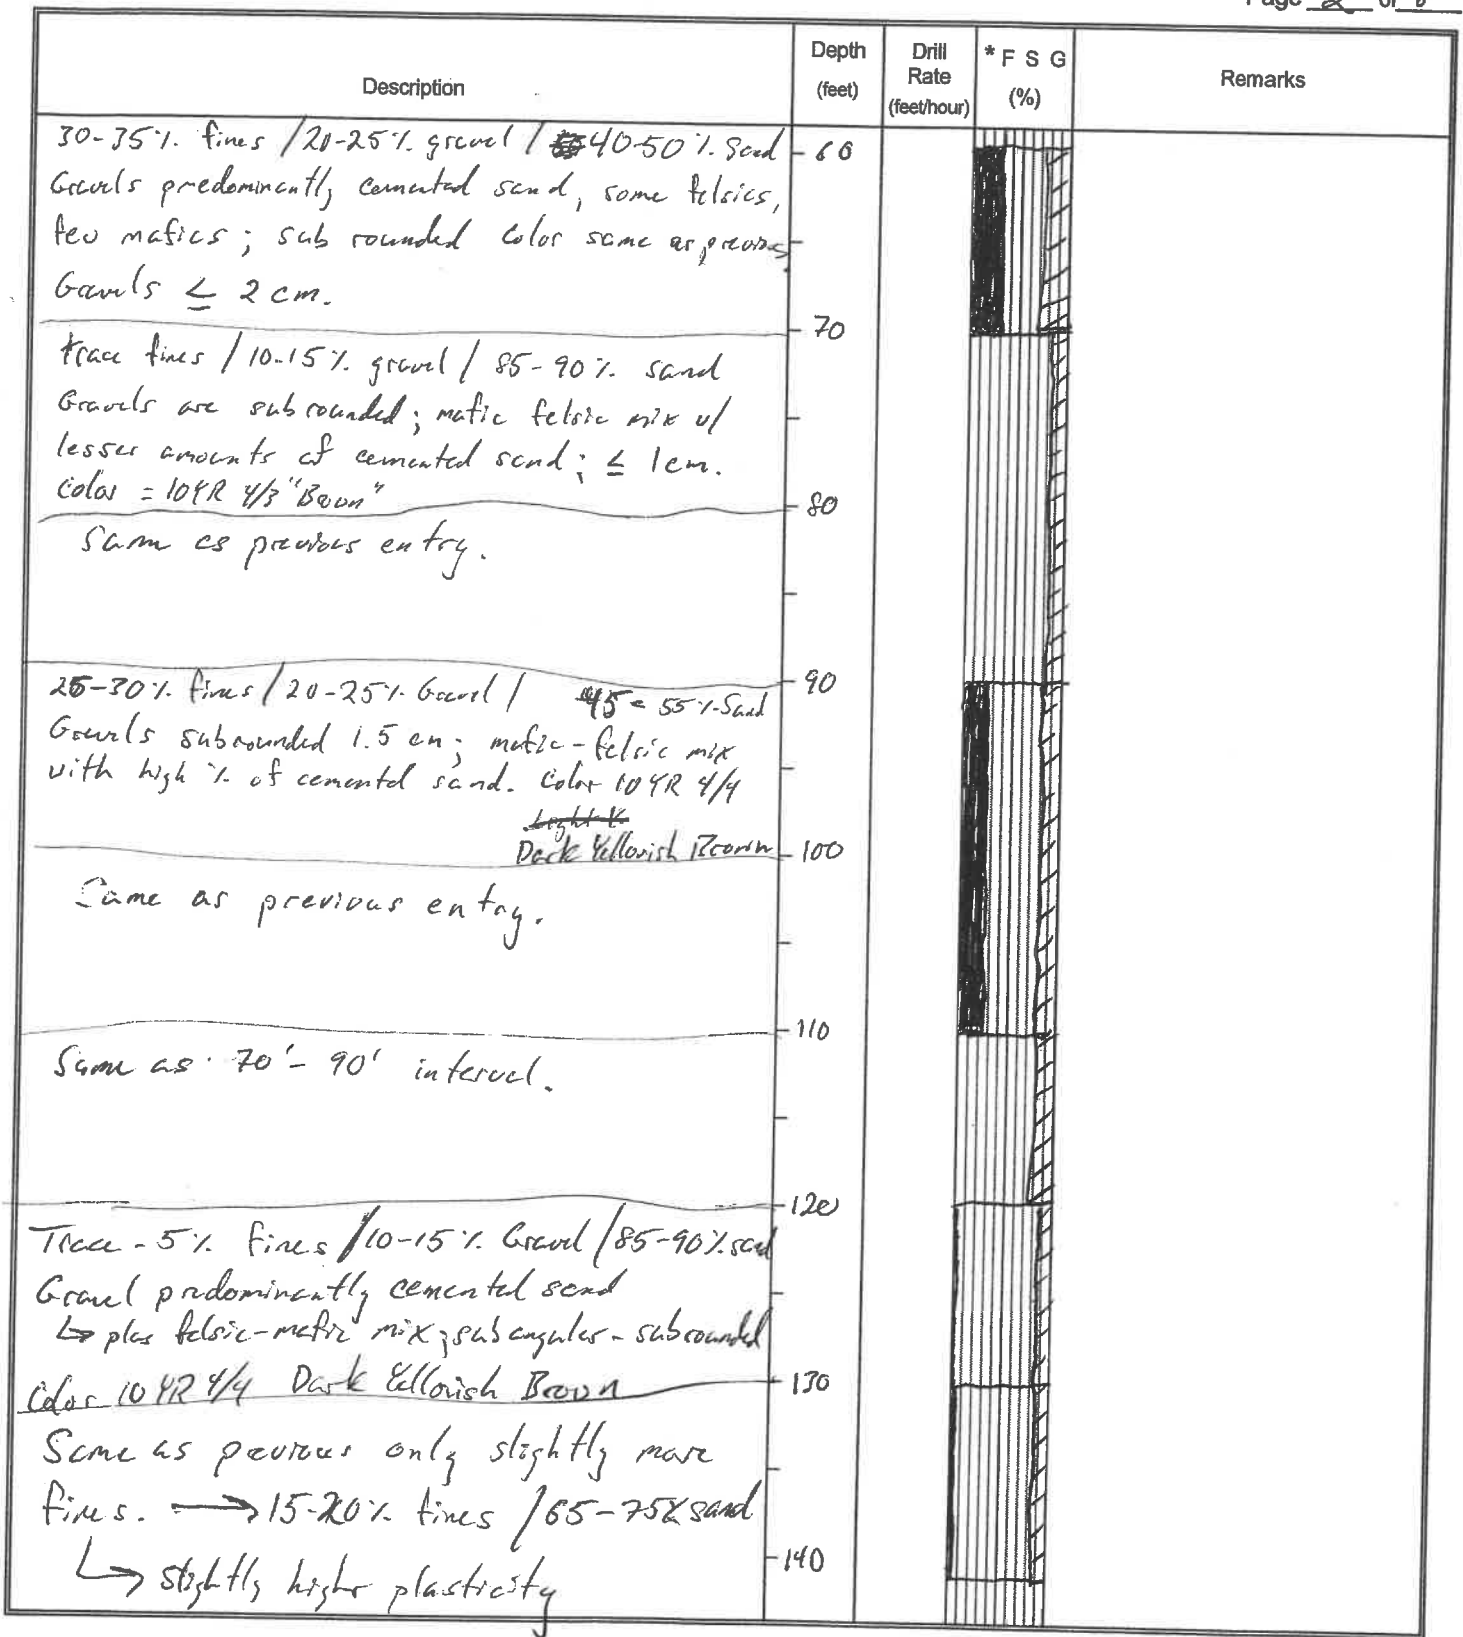 Page 2 of
Description
Depth
(feet)
Drill
Rate
(feet/hour)
* F S G
(%)
Remarks
30-35% fines / 20-25% gravel / 40-50% Sand
Gravels predominantly cemented sand, some felsics,
few mafics; sub rounded color same as previous
Gravels ≤ 2 cm.
60
70
trace fines / 10-15% gravel / 85-90% sand
Gravels are subrounded; mafic felsic mix w/
lesser amounts of cemented sand; ≤ 1cm.
Color = 10YR 4/3 "Brown"
80
Same as previous entry.
90
25-30% fines / 20-25% Gravel / 45-55% Sand
Gravels subrounded 1.5 cm; mafic-felsic mix
with high % of cemented sand. Color 10YR 4/4
Light
Dark Yellowish Brown
100
Same as previous entry.
110
Same as 70'-90' interval.
120
Trace-5% fines / 10-15% Gravel / 85-90% sand
Gravel predominantly cemented sand
↳ plus felsic-mafic mix; subangular-subrounded
Color 10YR 4/4 Dark Yellowish Brown
130
Same as previous only slightly more
fines. → 15-20% fines / 65-75% sand
↳ slightly higher plasticity
140